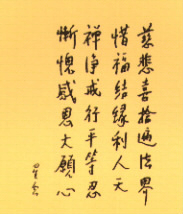 慈悲喜捨遍法界
惜福結緣利人天
禪淨戒行平等忍
慚愧感恩大願心
星雲